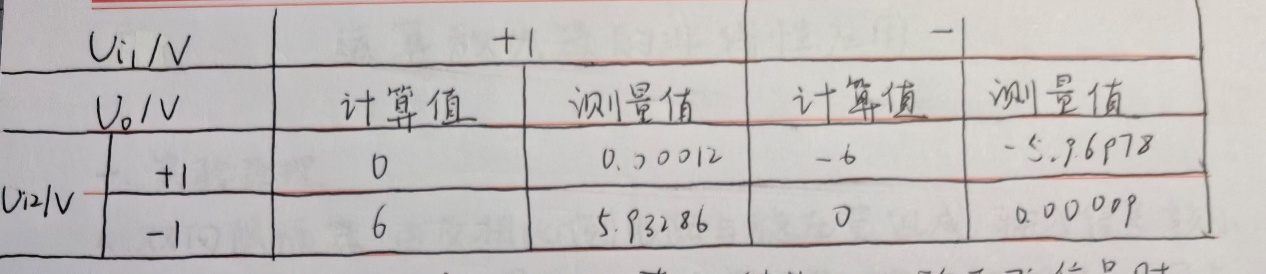 Ui1/V +1 -1
Uo/V 计算值 测量值 计算值 测量值
Ui2/V
+1 0 0.00012 -6 -5.96978
-1 6 5.93286 0 0.00009